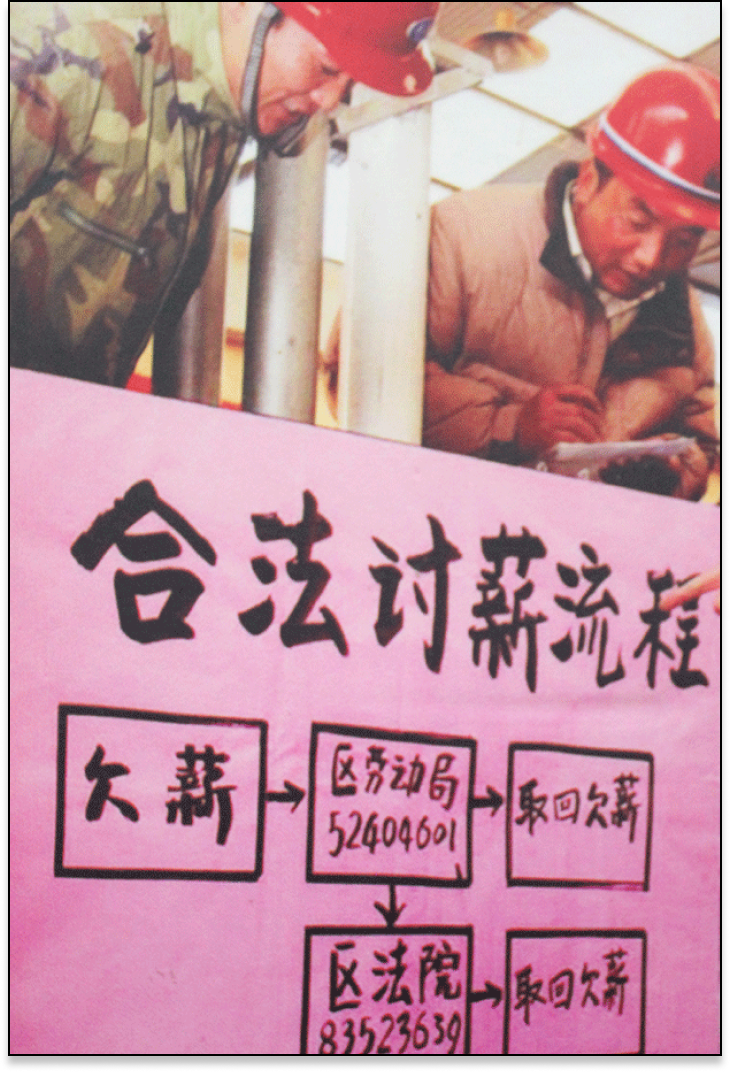 合法讨薪流程
欠薪
区劳动局
52404601
取回欠薪
区法院
83523639
取回欠薪